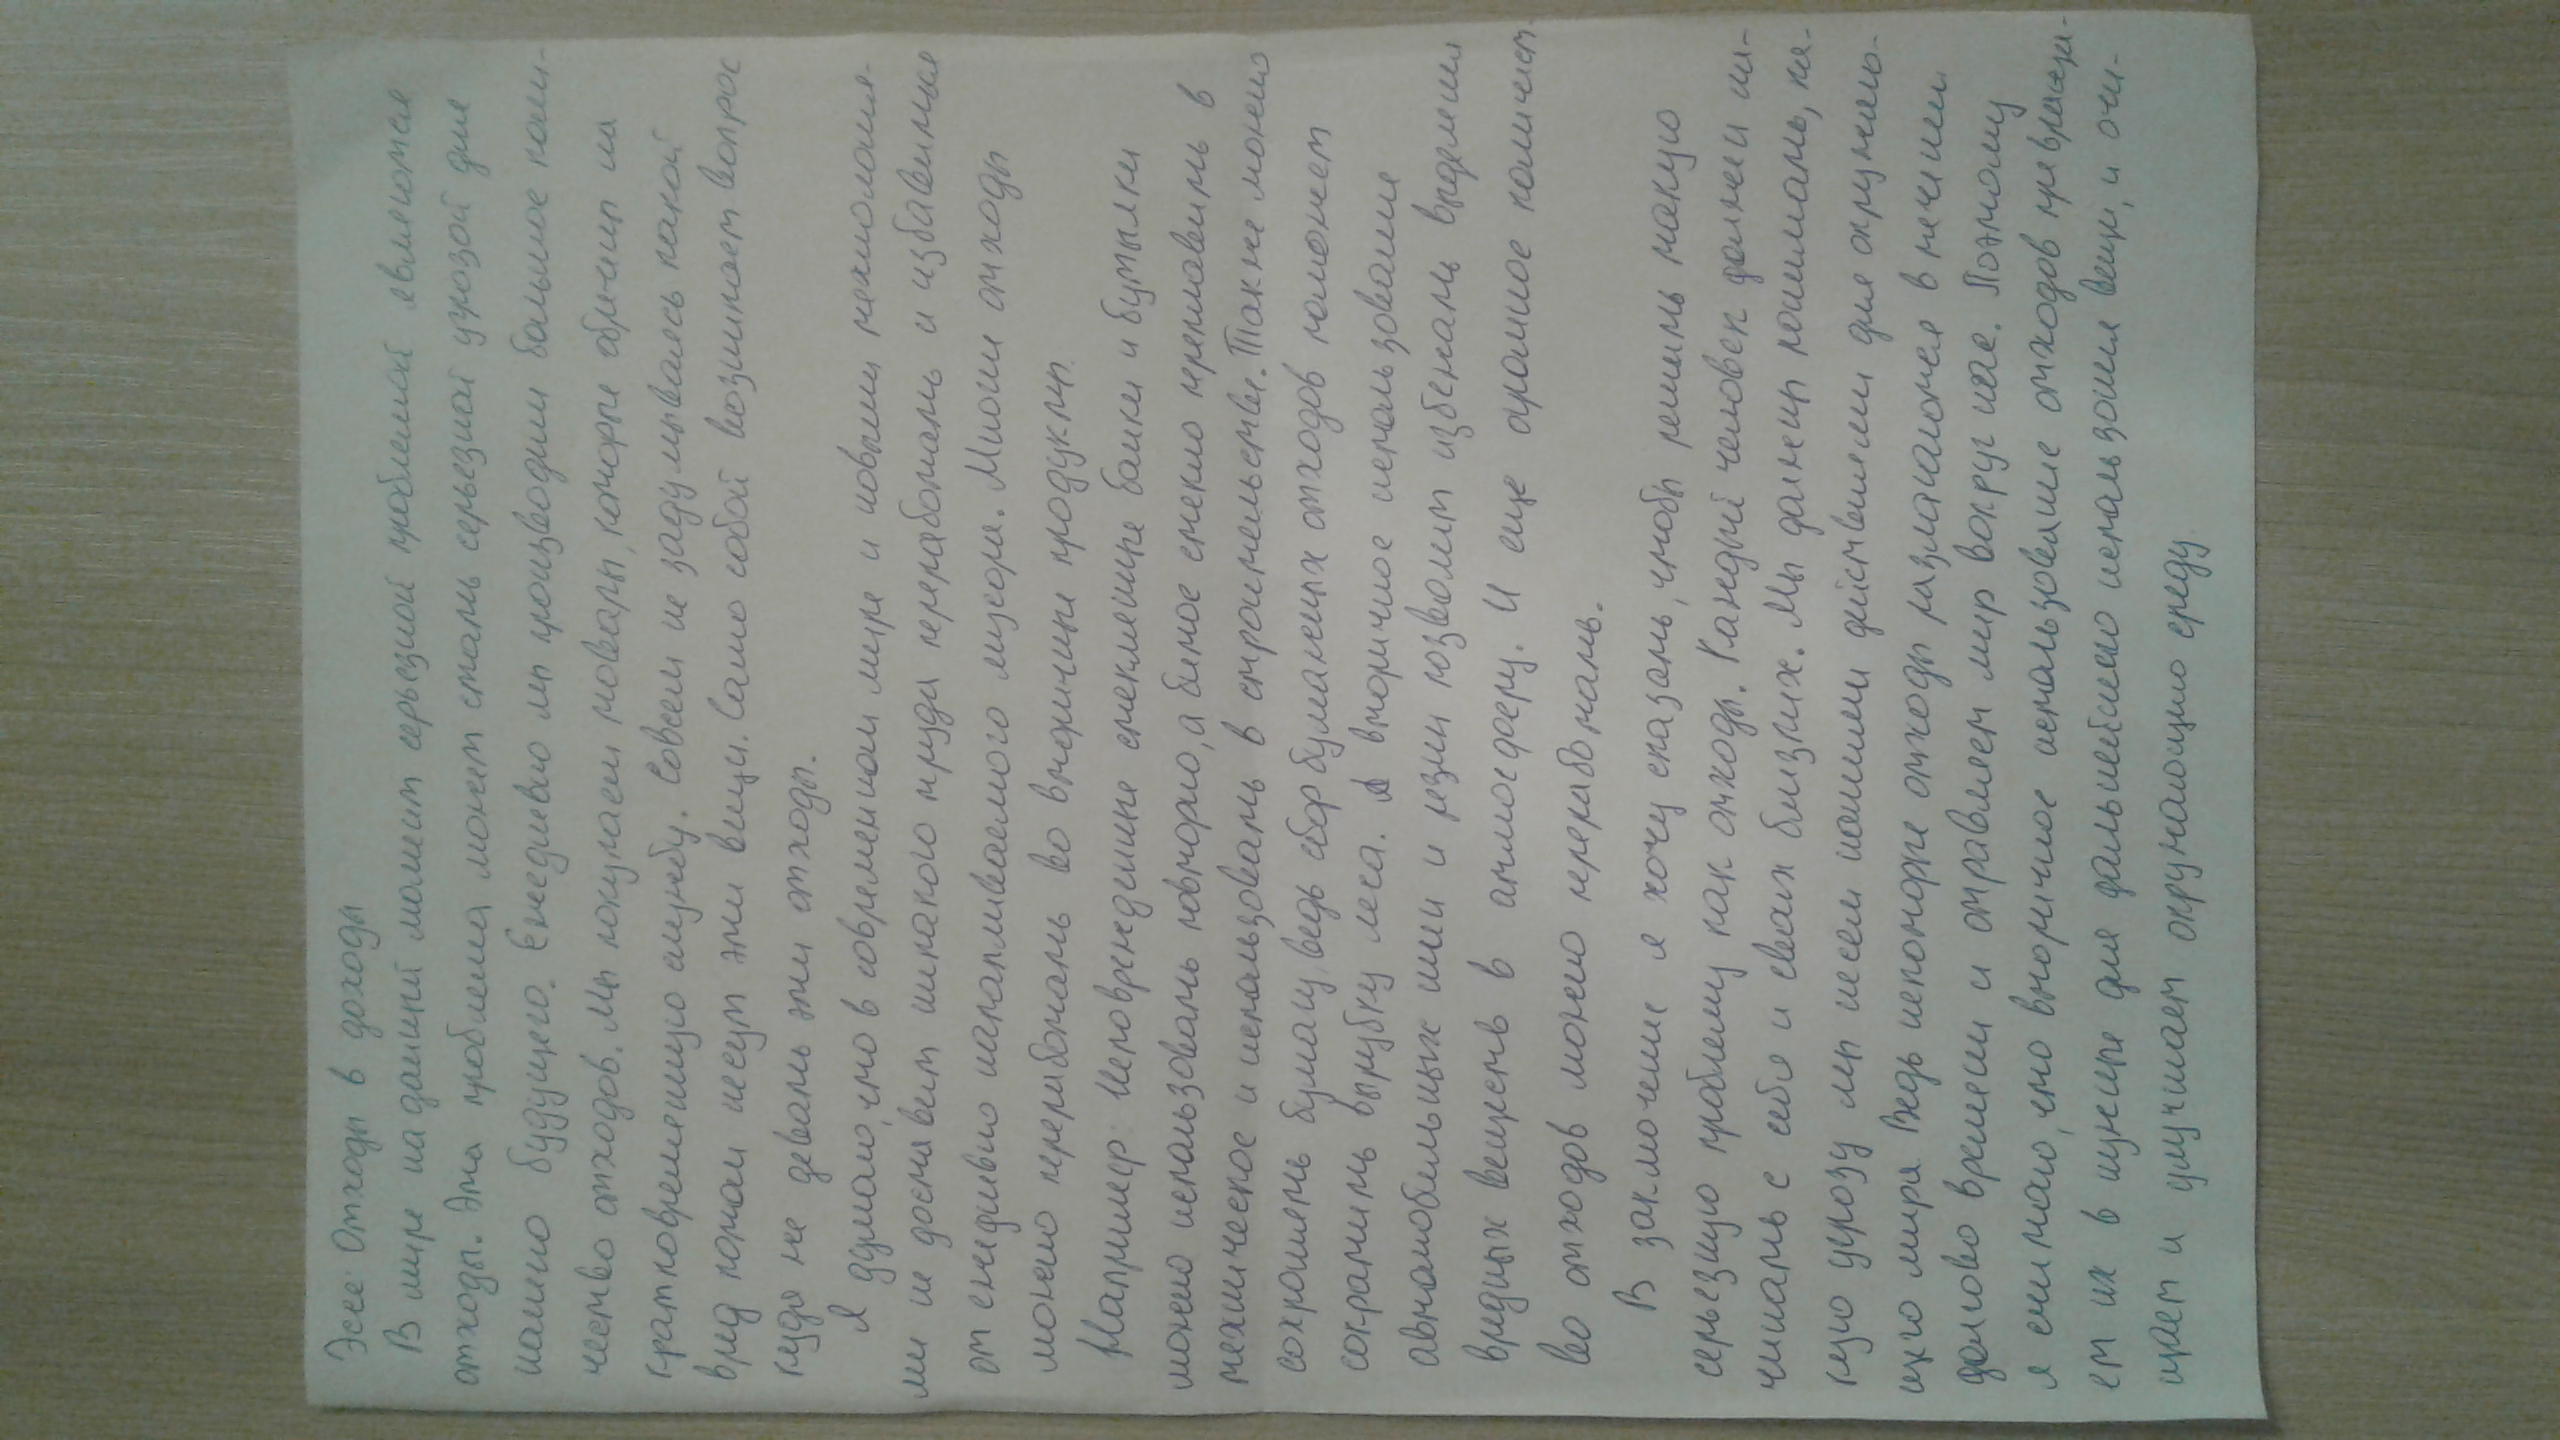 Эссе: Отходы в доходы
В мире на данный момент серьезной проблемой являются
отходы. Эта проблема может стать серьезной угрозой для
нашего будущего. Ежедневно мы производим большое коли-
чество отходов. Мы покупаем товары, которые обречены на
кратковременную службу. Совсем не задумываясь какой
вред потом несут эти вещи. Само собой возникает вопрос
куда же девать эти отходы.
Я думаю, что в современном мире и новыми технология-
ми не доставит никакого труда переработать и избавиться
от ежедневно накапливаемого мусора. Многие отходы
можно переработать во вторичные продукты.
Например: Неповрежденные стеклянные банки и бутылки
можно использовать повторно, а битое стекло переплавить в
техническое и использовать в строительстве. Также можно
сохранить бумагу, ведь сбор бумажных отходов поможет
сократить вырубку леса. А вторичное использование
автомобильных шин и резин позволит избежать выделения
вредных веществ в атмосферу. И еще огромное количест-
во отходов можно переработать.
В заключение я хочу сказать, чтобы решить такую
серьезную проблему как отходы. Каждый человек должен на-
чинать с себя и своих близких. Мы должны понимать, ка-
кую угрозу мы несем нашими действиями для окружаю-
щего мира. Ведь некоторые отходы разлагаются в течении
долгого времени и отравляет мир вокруг нас. Поэтому
я считаю, что вторичное использование отходов превращa-
ет их в нужные для дальнейшего использования вещи, и очи-
щает и улучшает окружающую среду.